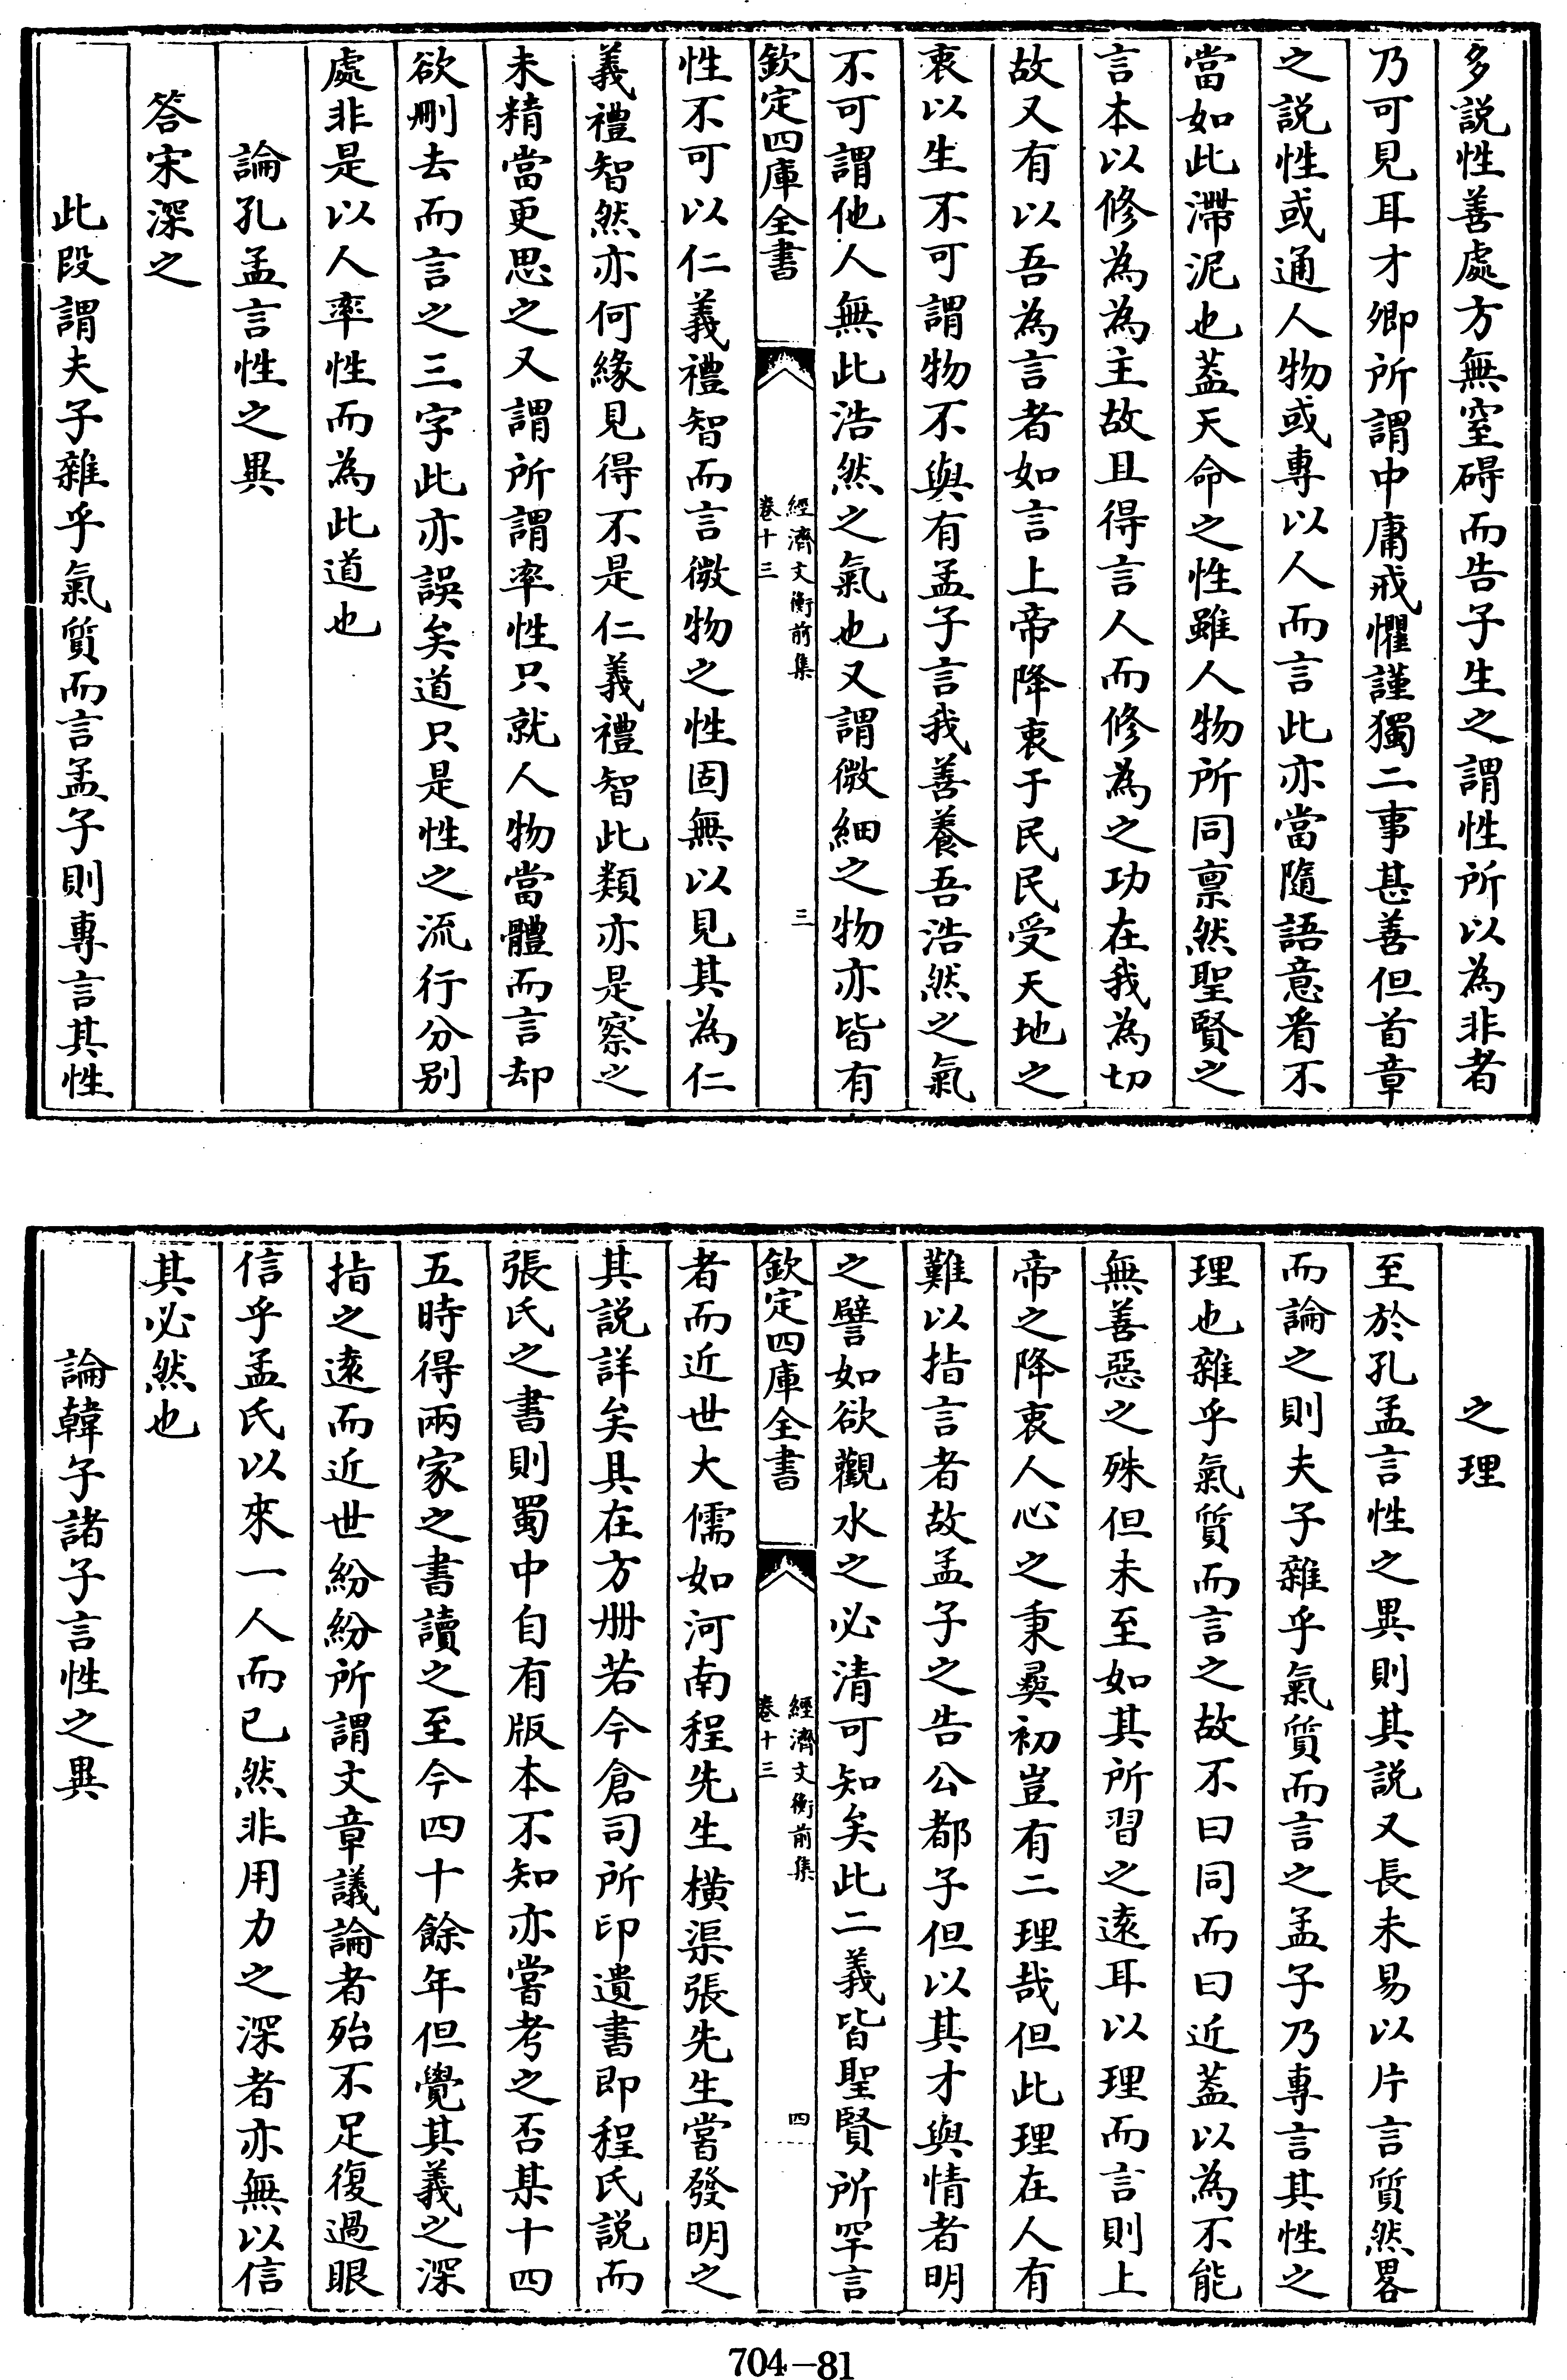 多説性善處方無窒碍而告子生之謂性所以為非者
乃可見耳才卿所謂中庸戒懼謹獨二事甚善但首章
之説性或通人物或專以人而言此亦當隨語意看不
當如此滯泥也蓋天命之性雖人物所同禀然聖賢之
言本以修為為主故且得言人而修為之功在我為切
故又有以吾為言者如言上帝降衷于民民受天地之
衷以生不可謂物不與有孟子言我善養吾浩然之氣
不可謂他人無此浩然之氣也又謂微細之物亦皆有
欽定四庫全書
經濟文衡前集
卷十三
三
性不可以仁義禮智而言微物之性固無以見其為仁
義禮智然亦何緣見得不是仁義禮智此類亦是察之
未精當更思之又謂所謂率性只就人物當體而言却
欲刪去而言之三字此亦誤矣道只是性之流行分别
處非是以人率性而為此道也
論孔孟言性之異
答宋深之
此段謂夫子雜乎氣質而言孟子則專言其性
之理
至於孔孟言性之異則其説又長未易以片言質然畧
而論之則夫子雜乎氣質而言之孟子乃專言其性之
理也雜乎氣質而言之故不曰同而曰近蓋以為不能
無善惡之殊但未至如其所習之逺耳以理而言則上
帝之降衷人心之秉彛初豈有二理哉但此理在人有
難以指言者故孟子之告公都子但以其才與情者明
之譬如欲觀水之必清可知矣此二義皆聖賢所罕言
欽定四庫全書
經濟文衡前集
卷十三
四
者而近世大儒如河南程先生橫渠張先生嘗發明之
其説詳矣具在方册若今倉司所印遺書即程氏説而
張氏之書則蜀中自有版本不知亦嘗考之否某十四
五時得兩家之書讀之至今四十餘年但覺其義之深
指之逺而近世紛紛所謂文章議論者殆不足復過眼
信乎孟氏以來一人而已然非用力之深者亦無以信
其必然也
論韓子諸子言性之異
704-81